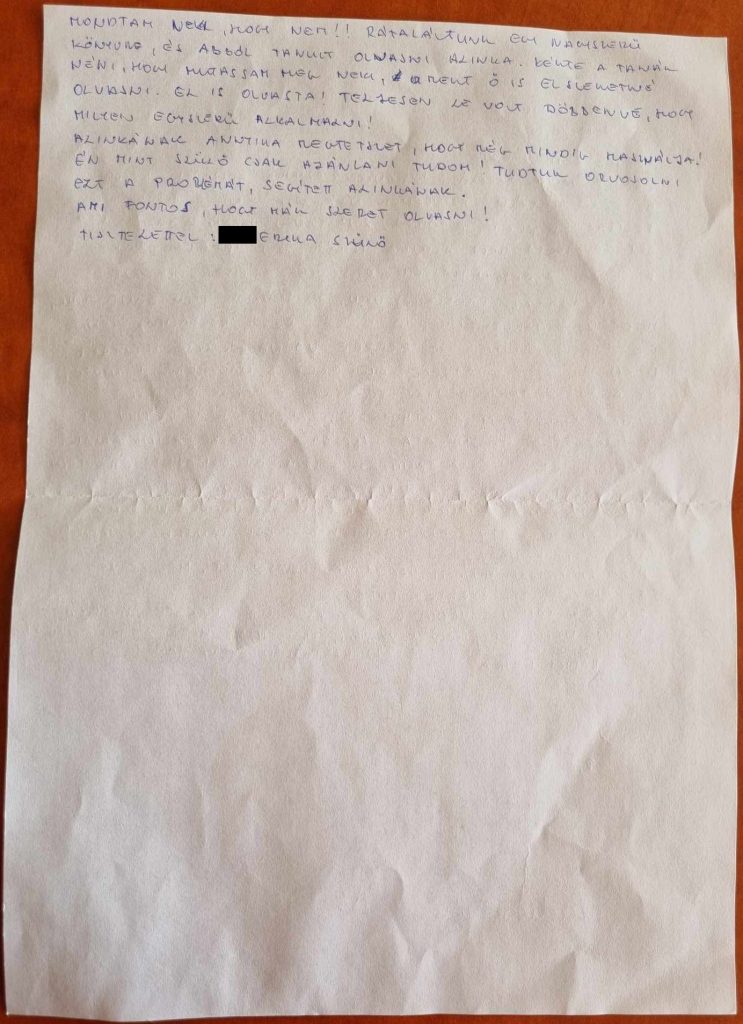 MONDTAM NEKI, HOGY NEM!! RÁTALÁLTUNK EGY NAGYSZERŰ
KÖNYVRE, ÉS ABBÓL TANULT OLVASNI ALINKA. KÉRTE A TANÁR
NÉNI, HOGY MUTASSAM MEG NEKI, MERT Ő IS ELSZERETNÉ
OLVASNI. EL IS OLVASTA! TELJESEN LE VOLT DÖBBENVE, HOGY
MILYEN EGYSZERŰ ALKALMAZNI!
ALINKÁNAK ANNYIRA MEGTETSZET, HOGY MÉG MINDIG HASZNÁLJA!
ÉN MINT SZÜLŐ CSAK AJÁNLANI TUDOM! TUDTUK ORVOSOLNI
EZT A PROBLÉMÁT, SEGÍTETT ALINKÁNAK.
AMI FONTOS, HOGY MÁR SZERET OLVASNI!
TISZTELETTEL: ERIKA SZÜLŐ